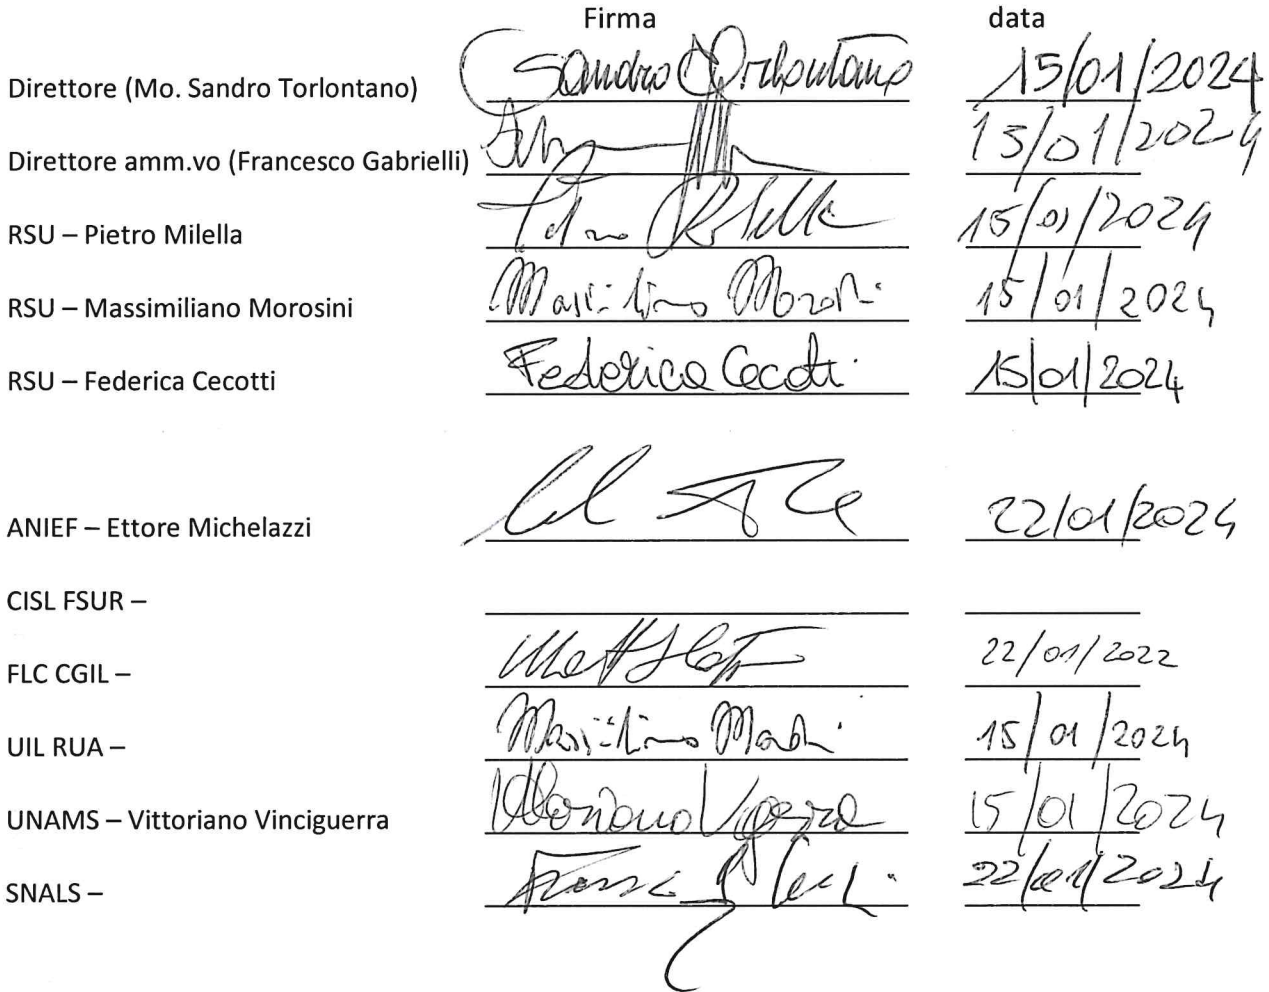 Firma data
Direttore (Mo. Sandro Torlontano) Sandro Torlontano 15/01/2024
Direttore amm.vo (Francesco Gabrielli) 15/01/2024
RSU – Pietro Milella Pietro Milella 15/01/2024
RSU – Massimiliano Morosini Massimiliano Morosini 15/01/2024
RSU – Federica Cecotti Federica Cecotti 15/01/2024
ANIEF – Ettore Michelazzi 22/01/2024
CISL FSUR –
FLC CGIL – 22/01/2022
UIL RUA – 15/01/2024
UNAMS – Vittoriano Vinciguerra 15/01/2024
SNALS – 22/01/2024